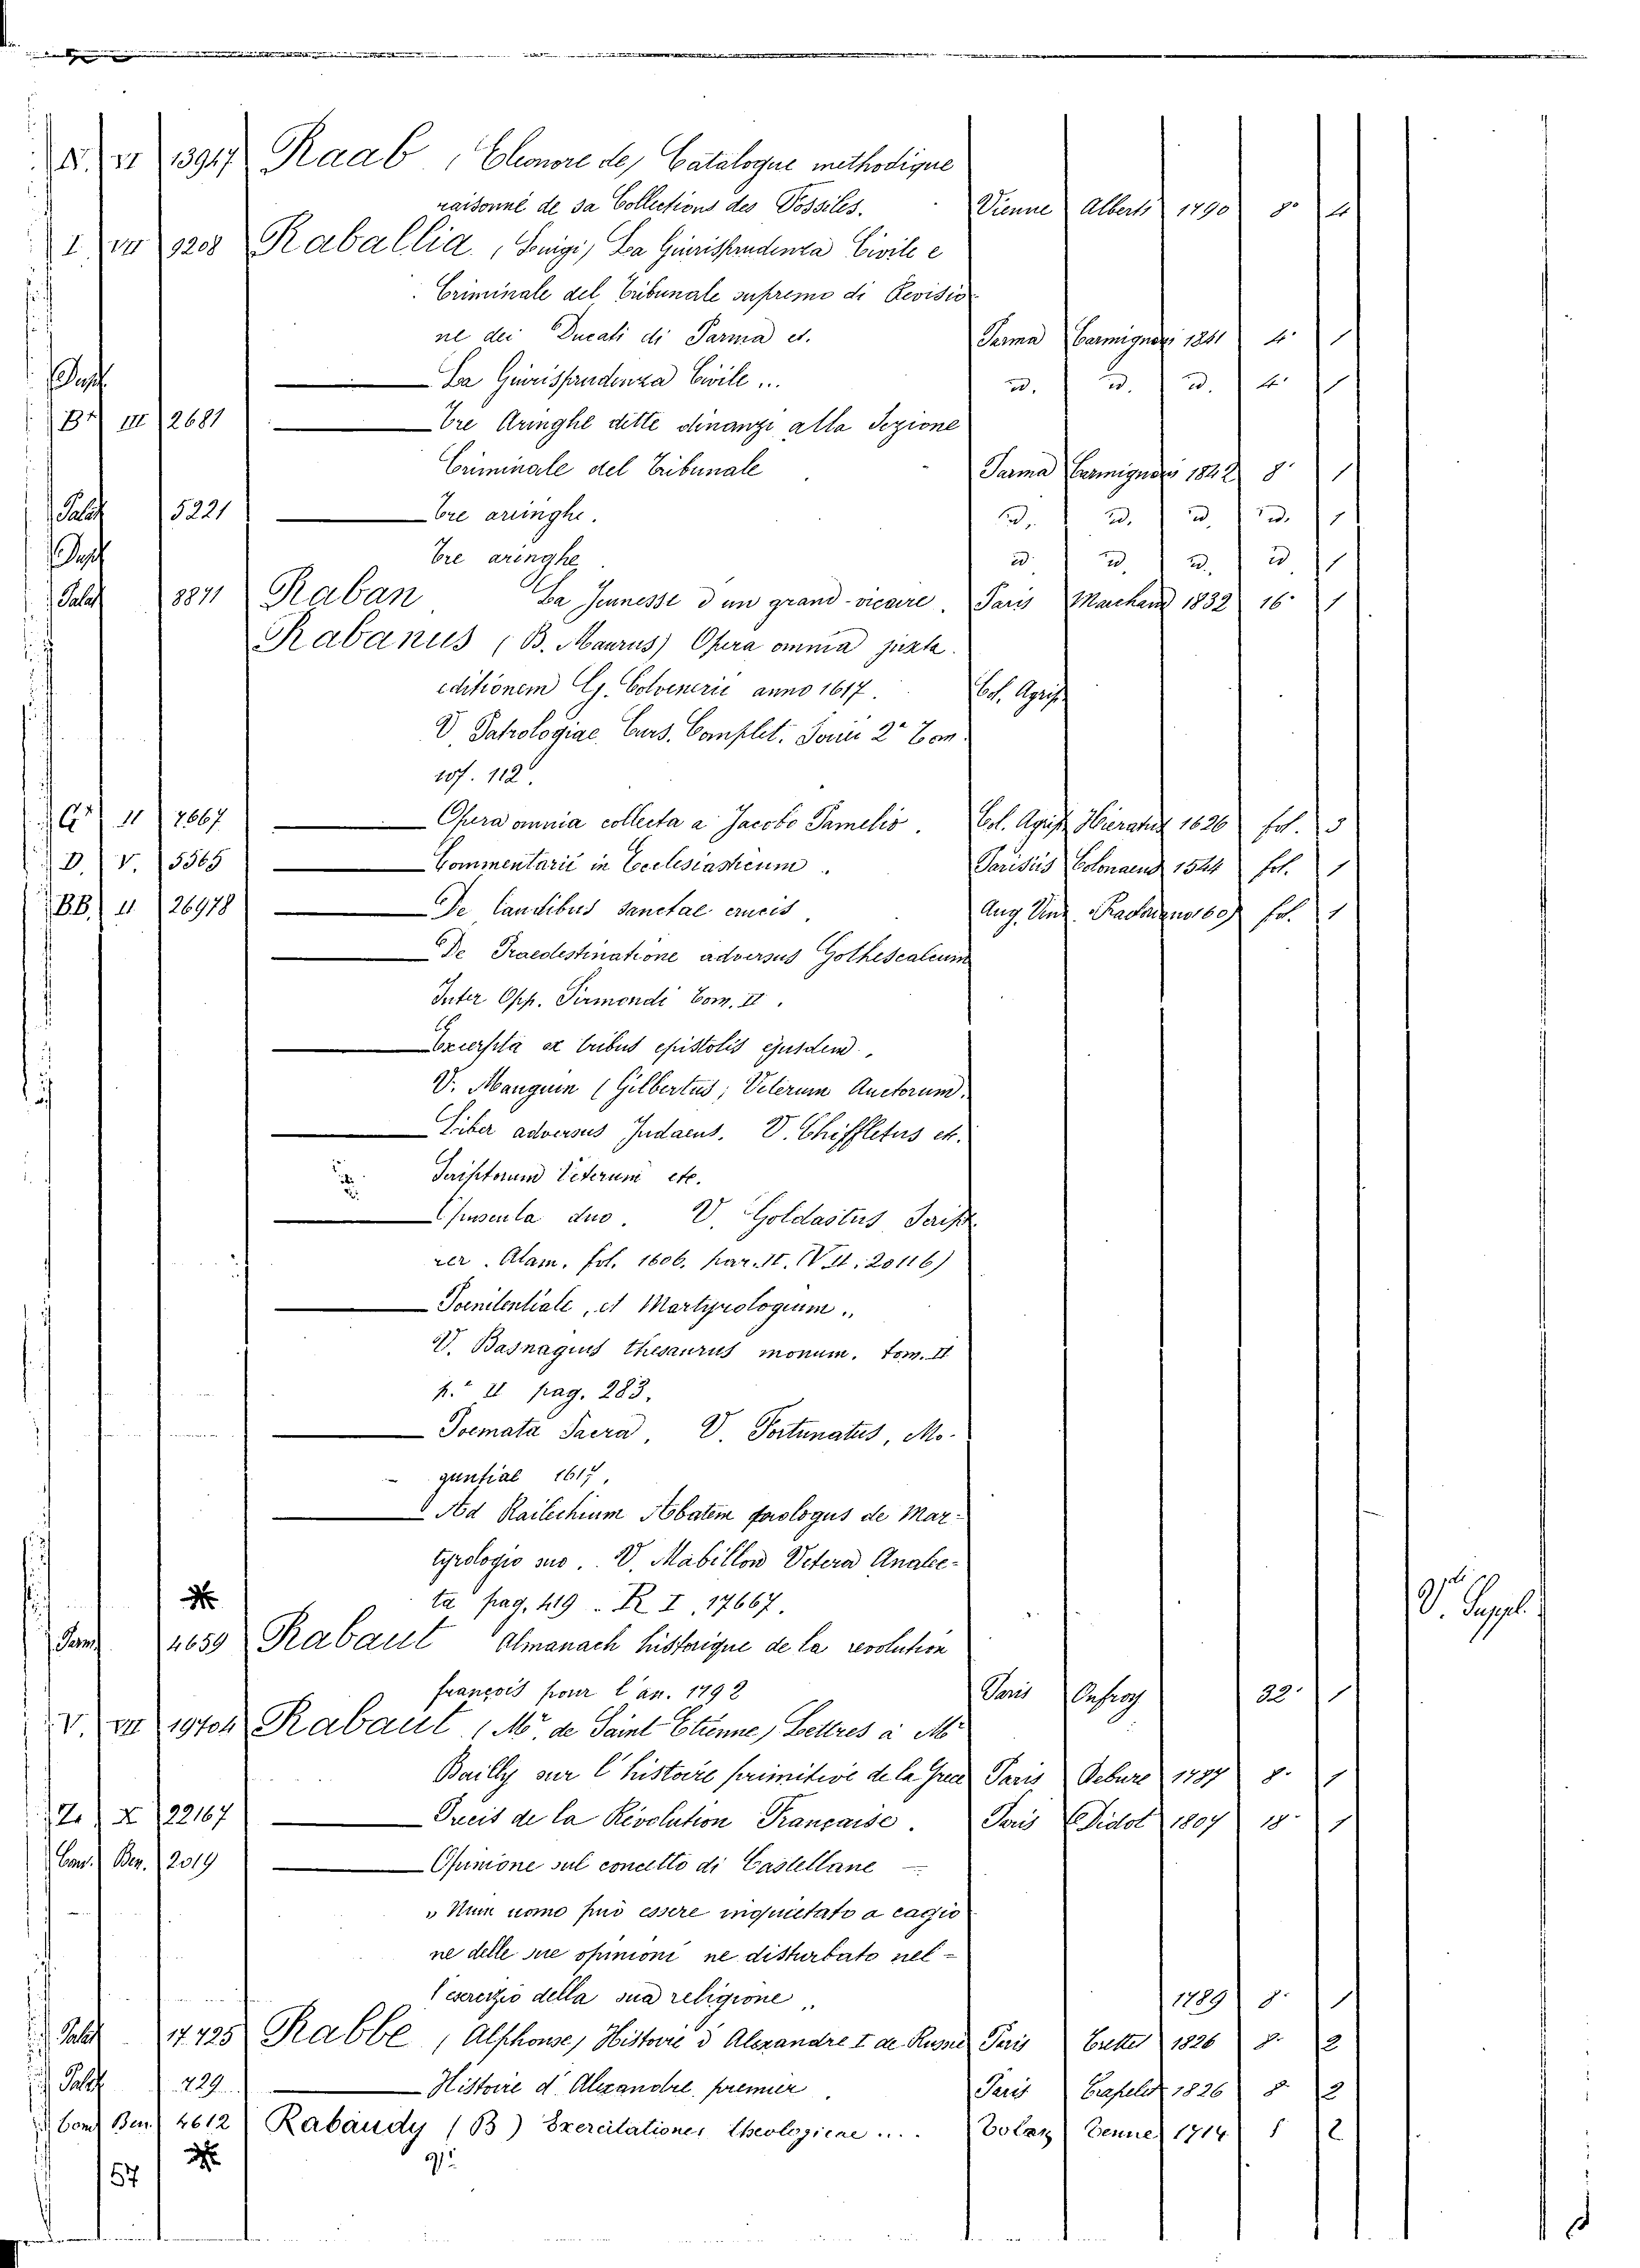 N. VI 13947 Raab, (Eleonore de) Catalogue methodique
raisonné de sa Collections des Fossiles. Vienne Alberti 1790 8° 4
I VII 9208 Raballia, (Luigi) La Giurisprudenza Civile e
Criminale del Tribunale supremo di Revisio
ne dei Ducati di Parma et. Parma Carmignani 1841 4° 1
Dupl. La Giurisprudenza Civile ... id. id. id. 4° 1
Br. III 2681 Tre Aringhe ditte dinanzi alla Sezione
Criminale del Tribunale Parma Carmignani 1842 8° 1
Palat 5221 Tre aringhe. id. id. id. id. 1
Dupl. Tre aringhe id. id. id. id. 1
Palat 8871 Raban La Jeunesse d'un grand-vicaire. Paris Marchand 1832 16° 1
Rabanus (B. Maurus) Opera omnia juxta
editionem G. Colvenerii anno 1617. Col. Agrip.
V. Patrologiae Curs. Complet. Serii 2a Tom.
107. 112.
G II 7667 Opera omnia collecta a Jacobo Pamelio. Col. Agrip. Hieratus 1626 fol. 3
D. V. 5565 Commentarii in Ecclesiasticum. Parisiis Colonaeus 1544 fol. 1
BB. II 26978 De laudibus sanctae crucis. Aug. Vind. fol. 1
De Praedestinatione adversus Gothescalcum
Inter Opp. Sirmondi Tom. II.
Excerpta ex tribus epistolis ejusdem.
V. Manguin (Gilbertus) Veterum Auctorum.
Liber adversus Judaeos. V. Chiffletus et.
Scriptorum Veterum etc.
Opuscula duo. V. Goldastus Script.
rer. Alam. fol. 1606. par. II. (V. II. 20116)
Poenitentiale, et Martyrologium.
V. Basnagius thesaurus monum. tom. II
p.e II pag. 283.
Poemata Sacra, V. Fortunatus, Mo-
guntiae 1617.
Ad Railechium Abatem prologus de Mar-
tyrologio suo. V. Mabillon Vetera Analec-
ta pag. 419. R I. 17667.
V. Suppl.
Parm. 4659 Rabaut Almanach historique de la revolution
françois pour l'an. 1792 Paris Onfroy 32° 1
V. VII 19704 Rabaut (Mr. de Saint Etienne) Lettres à Mr
Bailly sur l'histoire primitive de la Grece Paris Debure 1787 8° 1
Z. X 22167 Precis de la Révolution Française. Paris Didot 1807 18° 1
Com. Ben. 2019 Opinione sul concetto di Castellane
" Niun uomo può essere inquietato a cagio
ne delle sue opinioni ne disturbato nel-
l'esercizio della sua religione " 1789 8° 1
Palat 17425 Rabbe, (Alphonse) Histoire d'Alexandre I de Russie Paris Trettel 1826 8° 2
Palat 429 Histoire d'Alexandre premier. Paris 1826 8° 2
Com. Ben. 4612 Rabaudy (B) Exercitationes theologicae .... Tolos. 1714 8 2
57